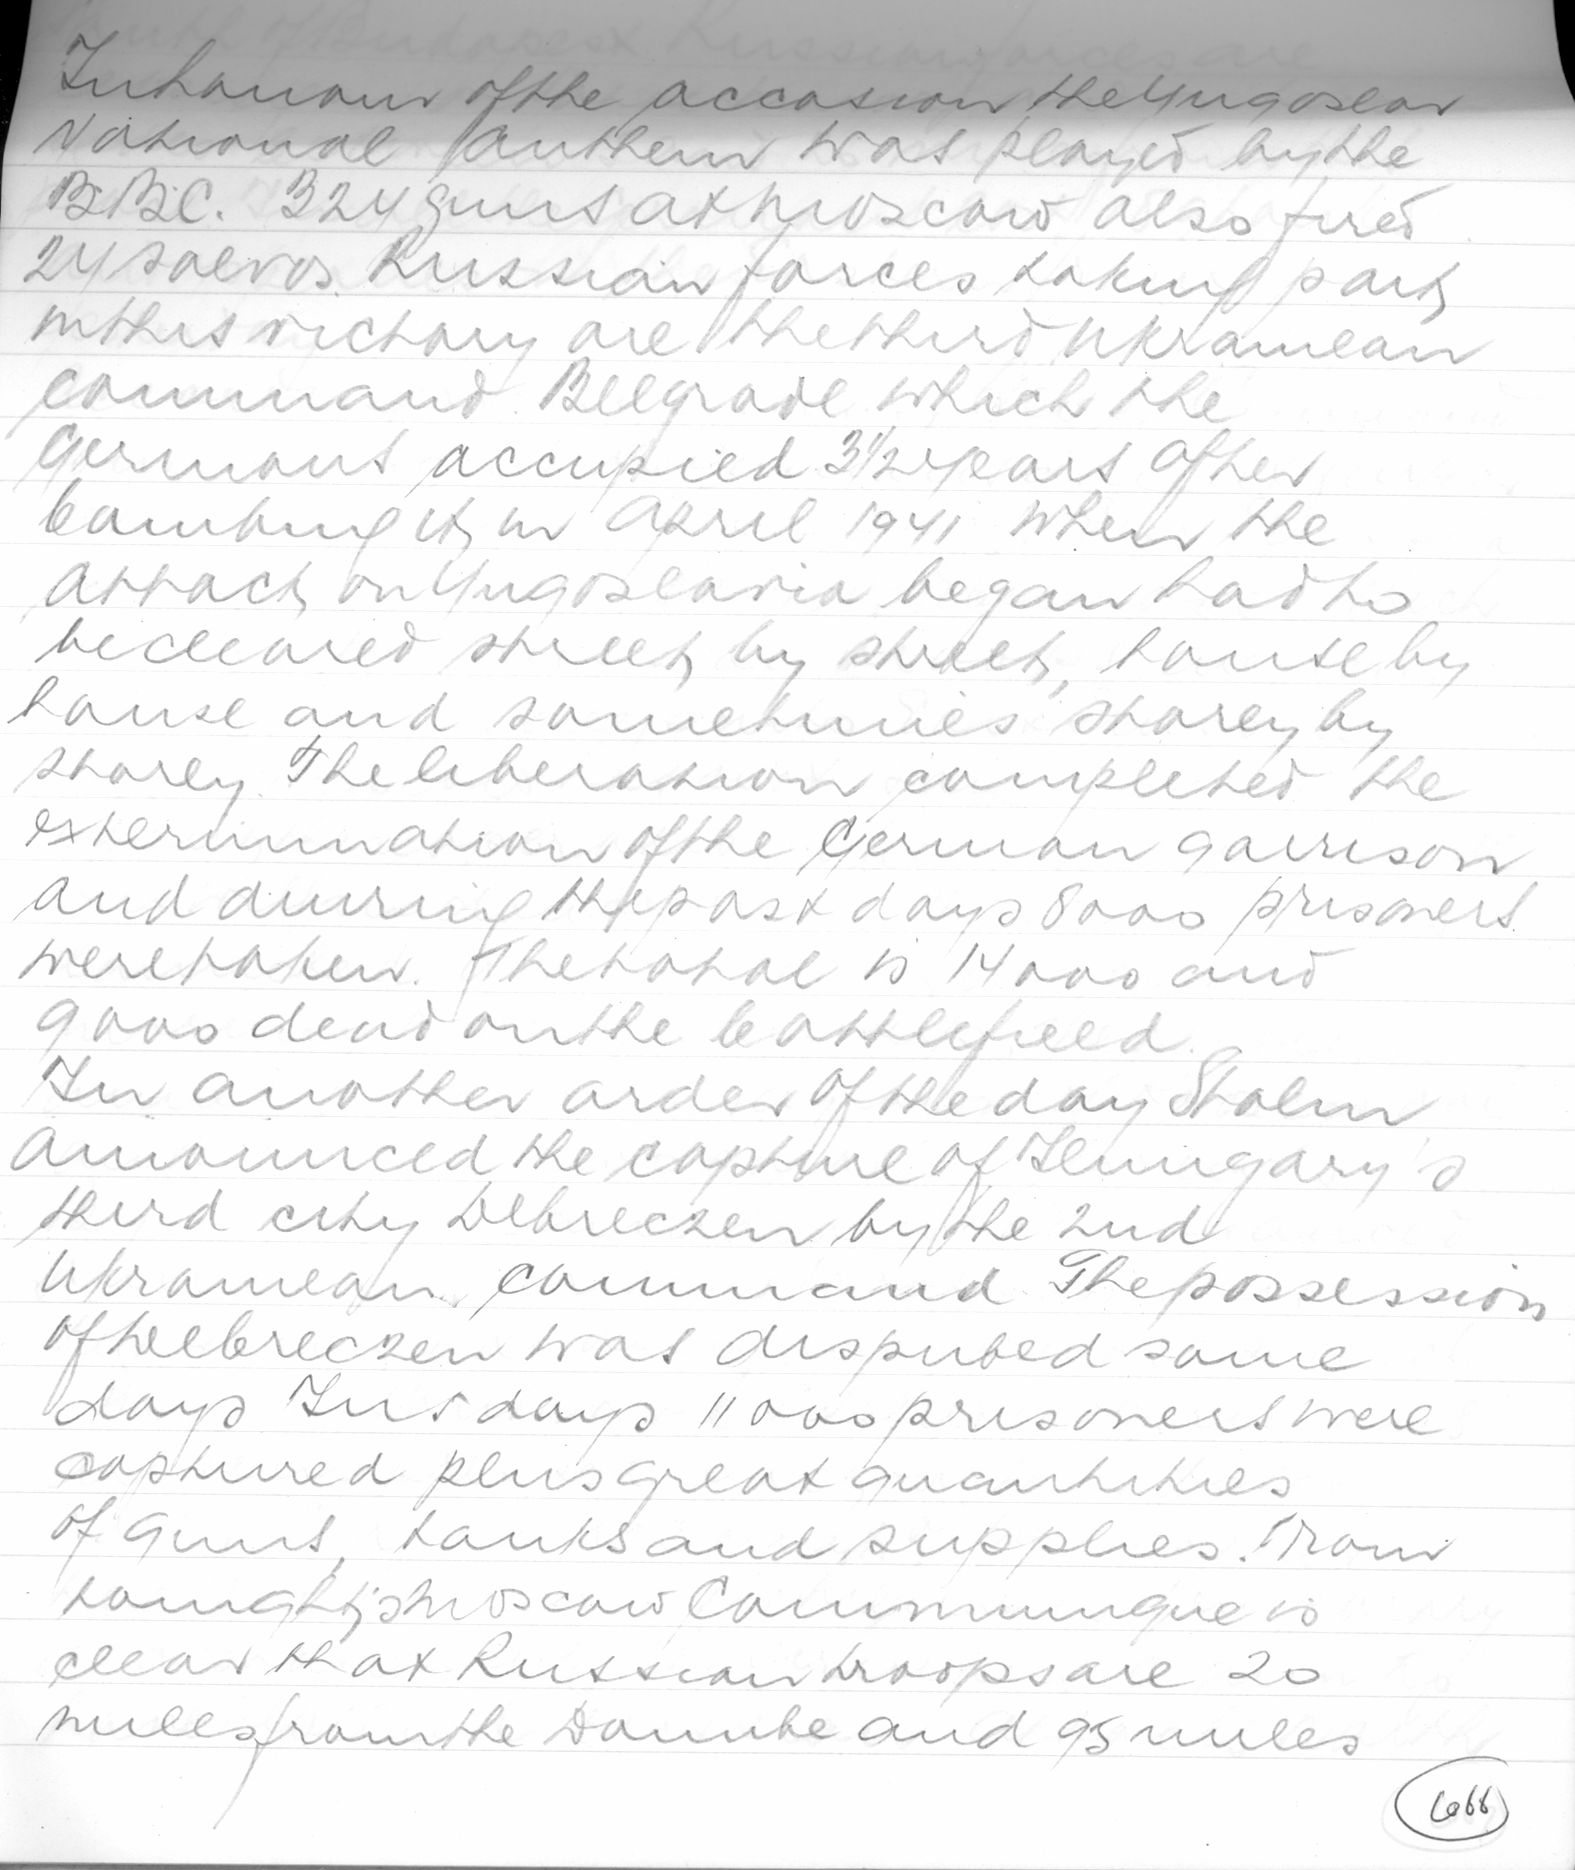 In honour of the occasion the Yugoslav
National Anthem was played by the
B.B.C. 324 guns at Moscow also fired
24 salvos. Russian forces taking part
in this victory are the third Ukrainean
command. Belgrade which the
Germans occupied 3 1/2 years after
bombing it in April 1941 when the
attack on Yugoslavia began had to
be cleared street by street, house by
house and sometimes storey by
storey. The liberation completed the
extermination of the German garrison
and during the past days 8000 prisoners
were taken. The total is 14000 and
9000 dead on the battlefield.
In another order of the day Stalin
announced the capture of Hungary's
third city Debreczen by the 2nd
Ukrainean command. The possession
of Debreczen was disputed some
days In 5 days 11000 prisoners were
captured plus great quantities
of guns, tanks and supplies. From
tonight's Moscow Communique is
clear that Russian troops are 20
miles from the Danube and 95 miles